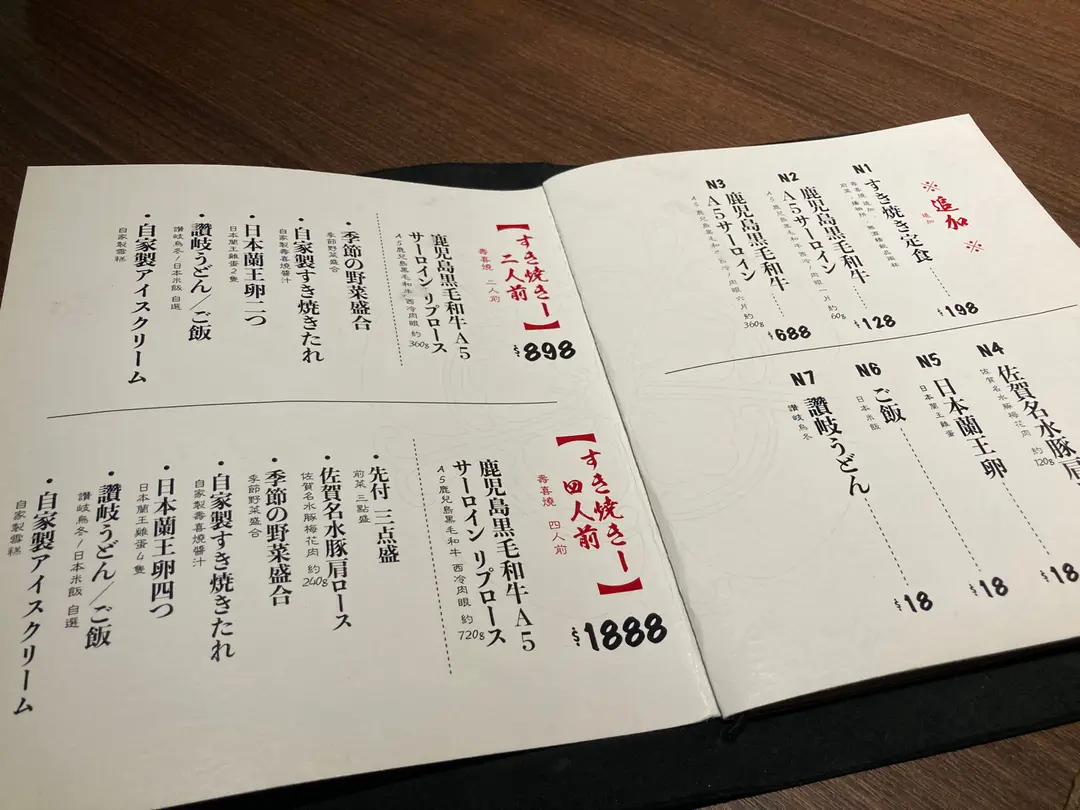 ※追加※
追加
N1 すき焼き定食
$198
N2 鹿児島黒毛和牛
A5サーロイン
A5鹿兒島黑毛和牛西冷/肉眼一片約60g
$128
N3 鹿児島黒毛和牛
A5サーロイン
A5鹿兒島黑毛和牛西冷/肉眼六片約360g
$688
N4 佐賀名水豚肩
佐賀名水豚梅花肉 約120g
$18
N5 日本蘭王卵
日本蘭王雞蛋
$18
N6 ご飯
日本米飯
$18
N7 讃岐うどん
讚岐烏冬
【すき焼きー二人前】
壽喜燒 二人前
$898
鹿児島黒毛和牛A5
サーロイン リブロース
A5鹿兒島黑毛和牛 西冷肉眼 約360g
・季節の野菜盛合
季節野菜盛合
・自家製すき焼きたれ
自家製壽喜燒醬汁
・日本蘭王卵二つ
日本蘭王雞蛋2隻
・讃岐うどん/ご飯
讚岐烏冬/日本米飯 自選
・自家製アイスクリーム
自家製雪糕
【すき焼きー四人前】
壽喜燒 四人前
$1888
鹿児島黒毛和牛A5
サーロイン リブロース
A5鹿兒島黑毛和牛 西冷肉眼 約720g
・先付 三点盛
前菜 三點盛
・佐賀名水豚肩ロース
佐賀名水豚梅花肉 約240g
・季節の野菜盛合
季節野菜盛合
・自家製すき焼きたれ
自家製壽喜燒醬汁
・日本蘭王卵四つ
日本蘭王雞蛋4隻
・讃岐うどん/ご飯
讚岐烏冬/日本米飯 自選
・自家製アイスクリーム
自家製雪糕